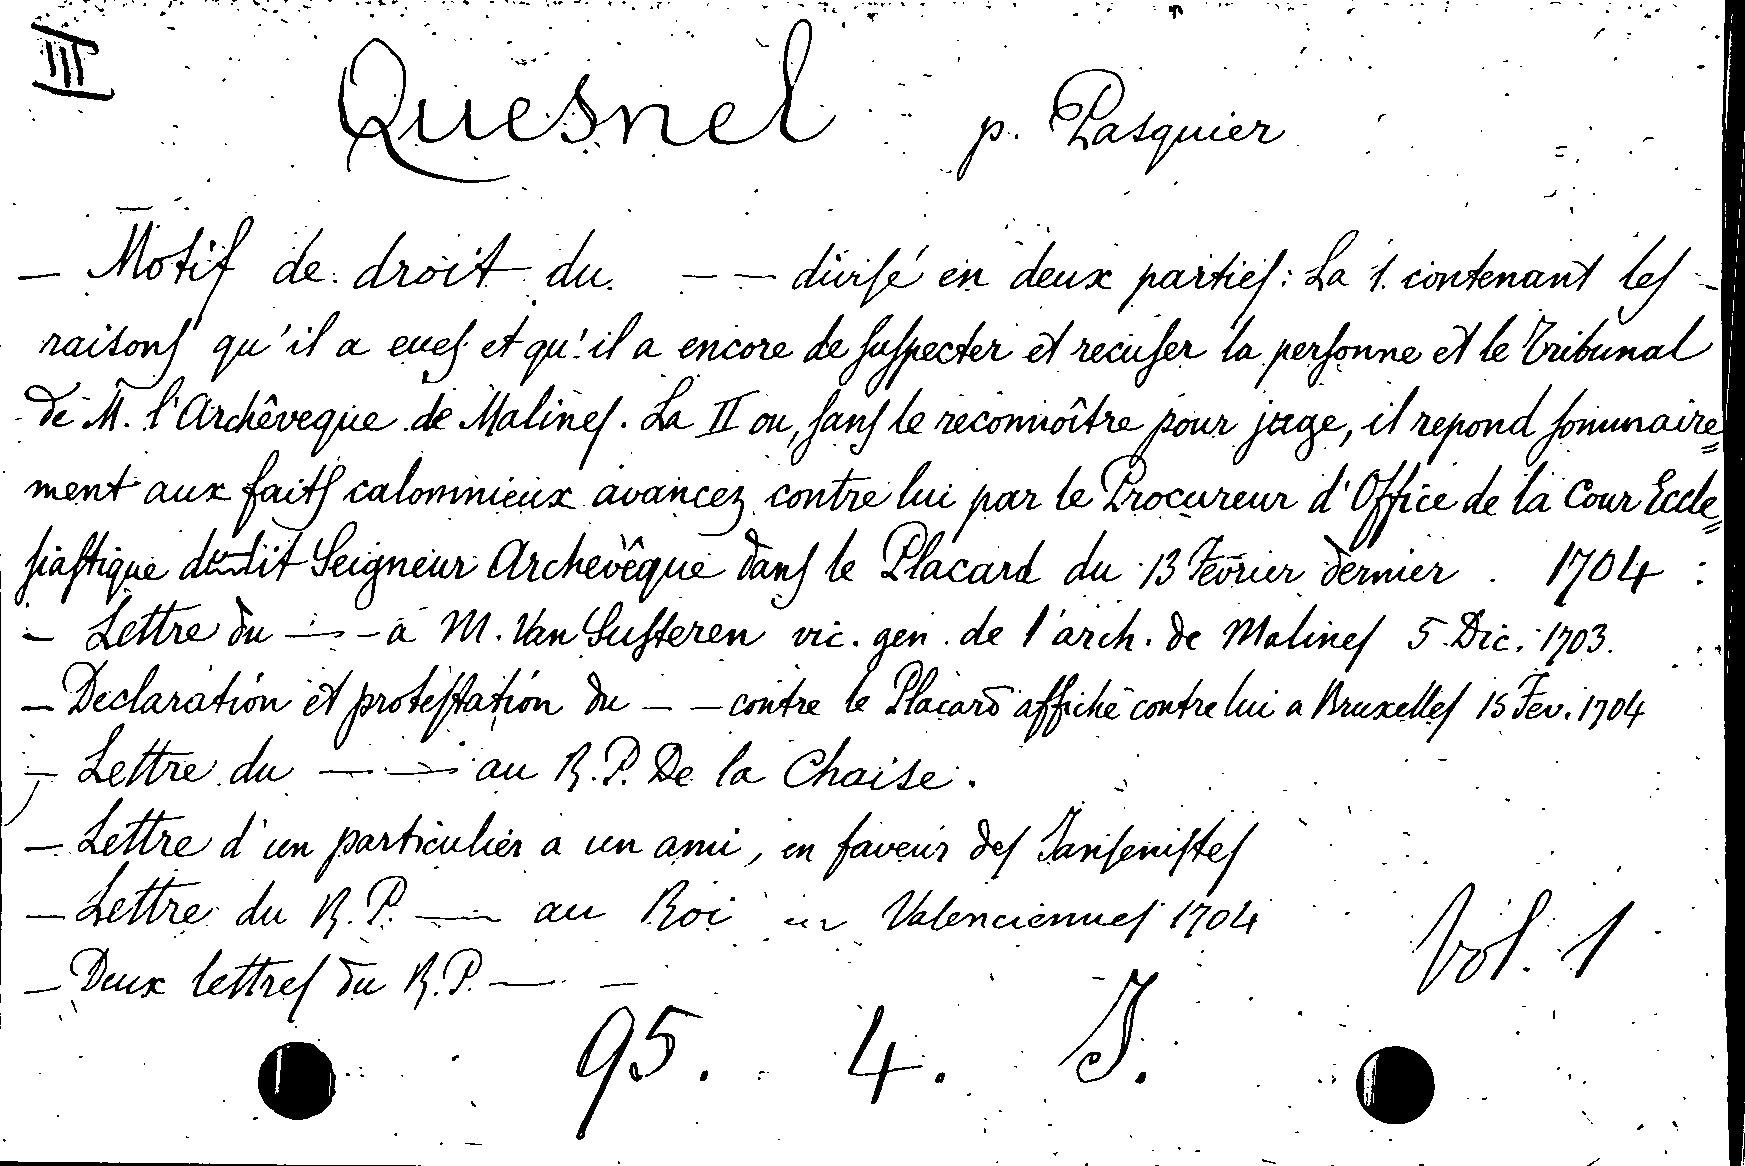 III
Quesnel p. Pasquier
— Motif de droit du — — divisé en deux parties: La 1. contenant les
raisons qu'il a eues et qu'il a encore de suspecter et recuser la personne et le Tribunal
de M. l'Archêveque de Malines. La II ou, sans le reconnoître pour juge, il repond sommaire=
ment aux faits calomnieux avancez contre lui par le Procureur d'Office de la Cour Eccle=
siastique dudit Seigneur Archevêque dans le Placard du 13 Fevrier dernier . 1704 :
— Lettre du — — à M. Van Susteren vic. gen. de l'arch. de Malines 5 Dic. 1703.
— Declaration et protestation du — — contre le Placard affiché contre lui a Bruxelles 15 Fev. 1704
— Lettre du — — au R.P. De la Chaise.
— Lettre d'un particulier a un ami, en faveur des Jansenistes
— Lettre du R.P. — au Roi Valenciennes 1704
— Deux lettres du R.P. — —
Vol. 1
95. 4. I.